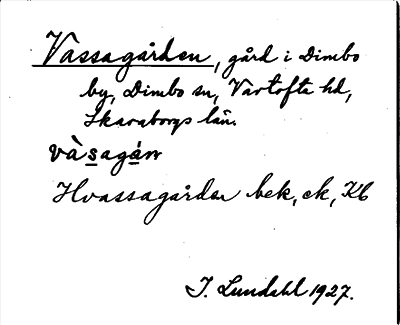 Vassagården, gård i Dimbo
by, Dimbo sn, Vartofta hd,
Skaraborgs län.
vàsagár
Hvassagården bek, ek, Kb
I. Lundahl 1927.